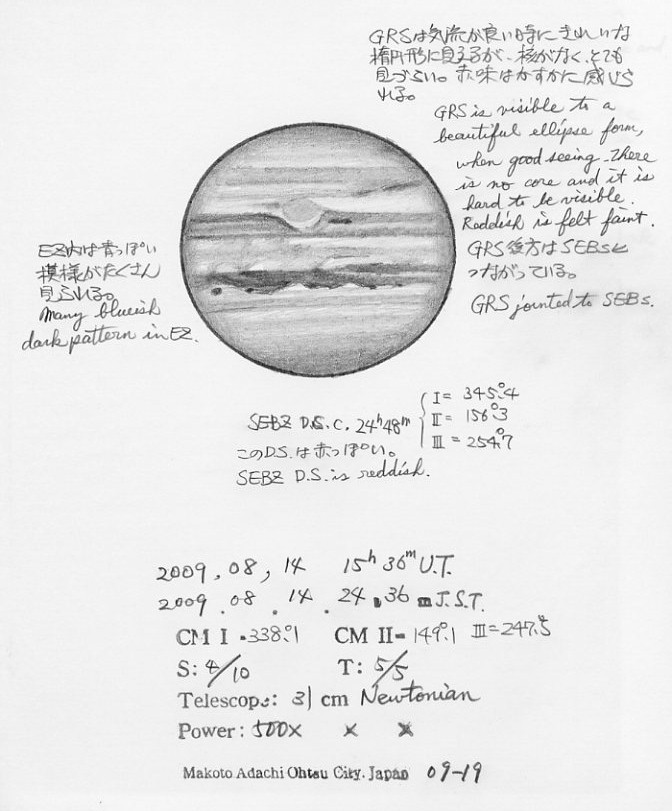 GRSは気流が良い時にきれいな
楕円形に見えるが、核がなく、とても
見づらい。赤味はかすかに感じら
れる。
GRS is visible to a
beautiful ellipse form,
when good seeing. There
is no core and it is
hard to be visible.
Roddish is felt faint.
GRS後方はSEBsと
つながっている。
GRS jointed to SEBs.
EZ内は青っぽい
模様がたくさん
見られる。
Many blueish
dark pattern in EZ.
SEBZ D.S. C. 24h48m
I = 345.°4
II = 156.°3
III = 254.°7
このD.S.は赤っぽい。
SEBZ D.S. is reddish.
2009, 08, 14 15h 36m U.T.
2009 . 08 . 14 . 24 . 36 m J.S.T.
CM I - 338.°1 CM II - 149.°1 III = 247.°5
S: 4/10 T: 5/5
Telescope: 31 cm Newtonian
Power: 500× × ×
Makoto Adachi Ohtsu City. Japan 09-19